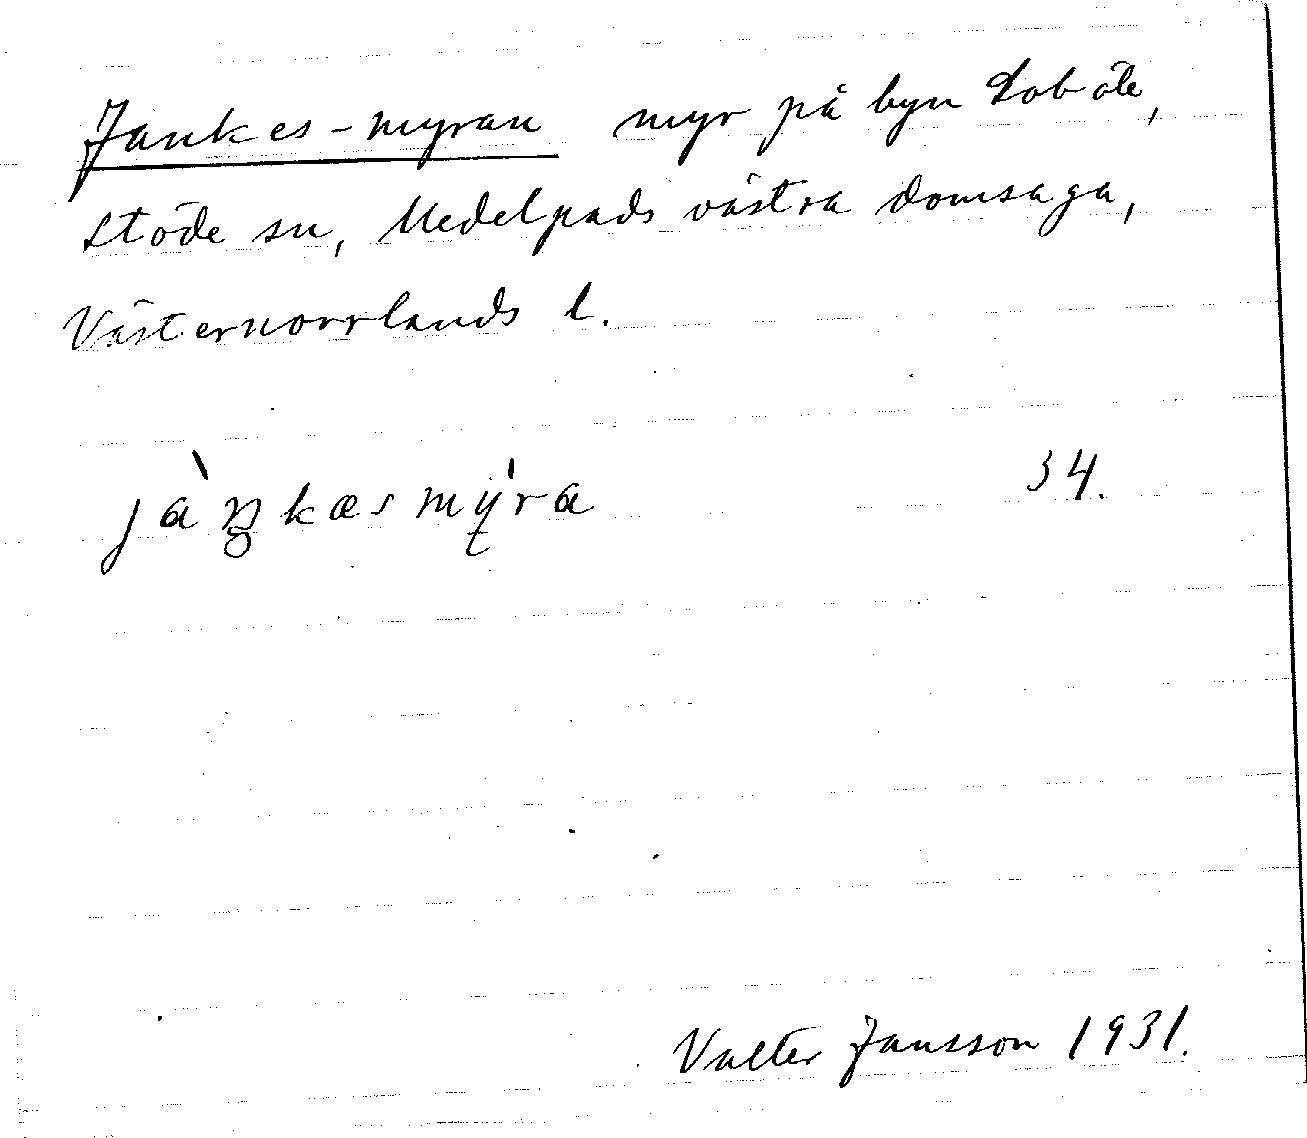 Jankes-myran myr på byn Loböle,
Stöde sn, Medelpads västra domsaga,
Västernorrlands l.
jàŋkæsmýra 34.
Valter Jansson 1931.